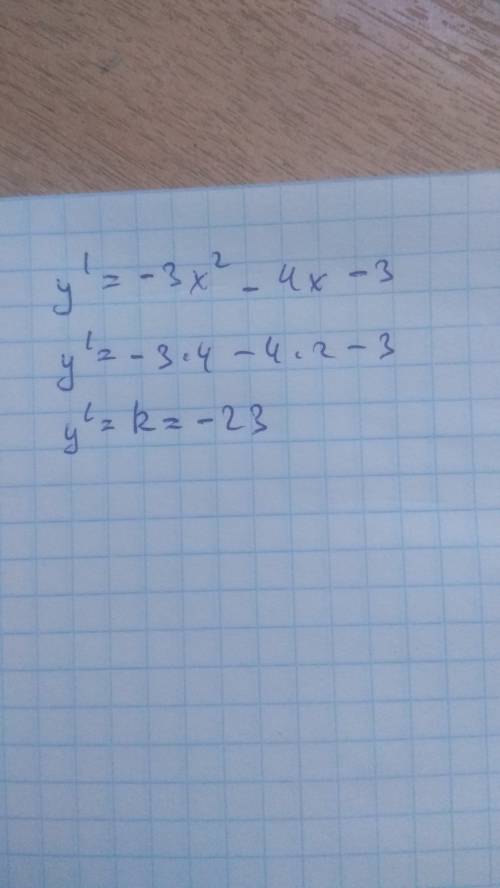 y' = -3x² - 4x - 3
y' = -3·4 - 4·2 - 3
y' = k = -23